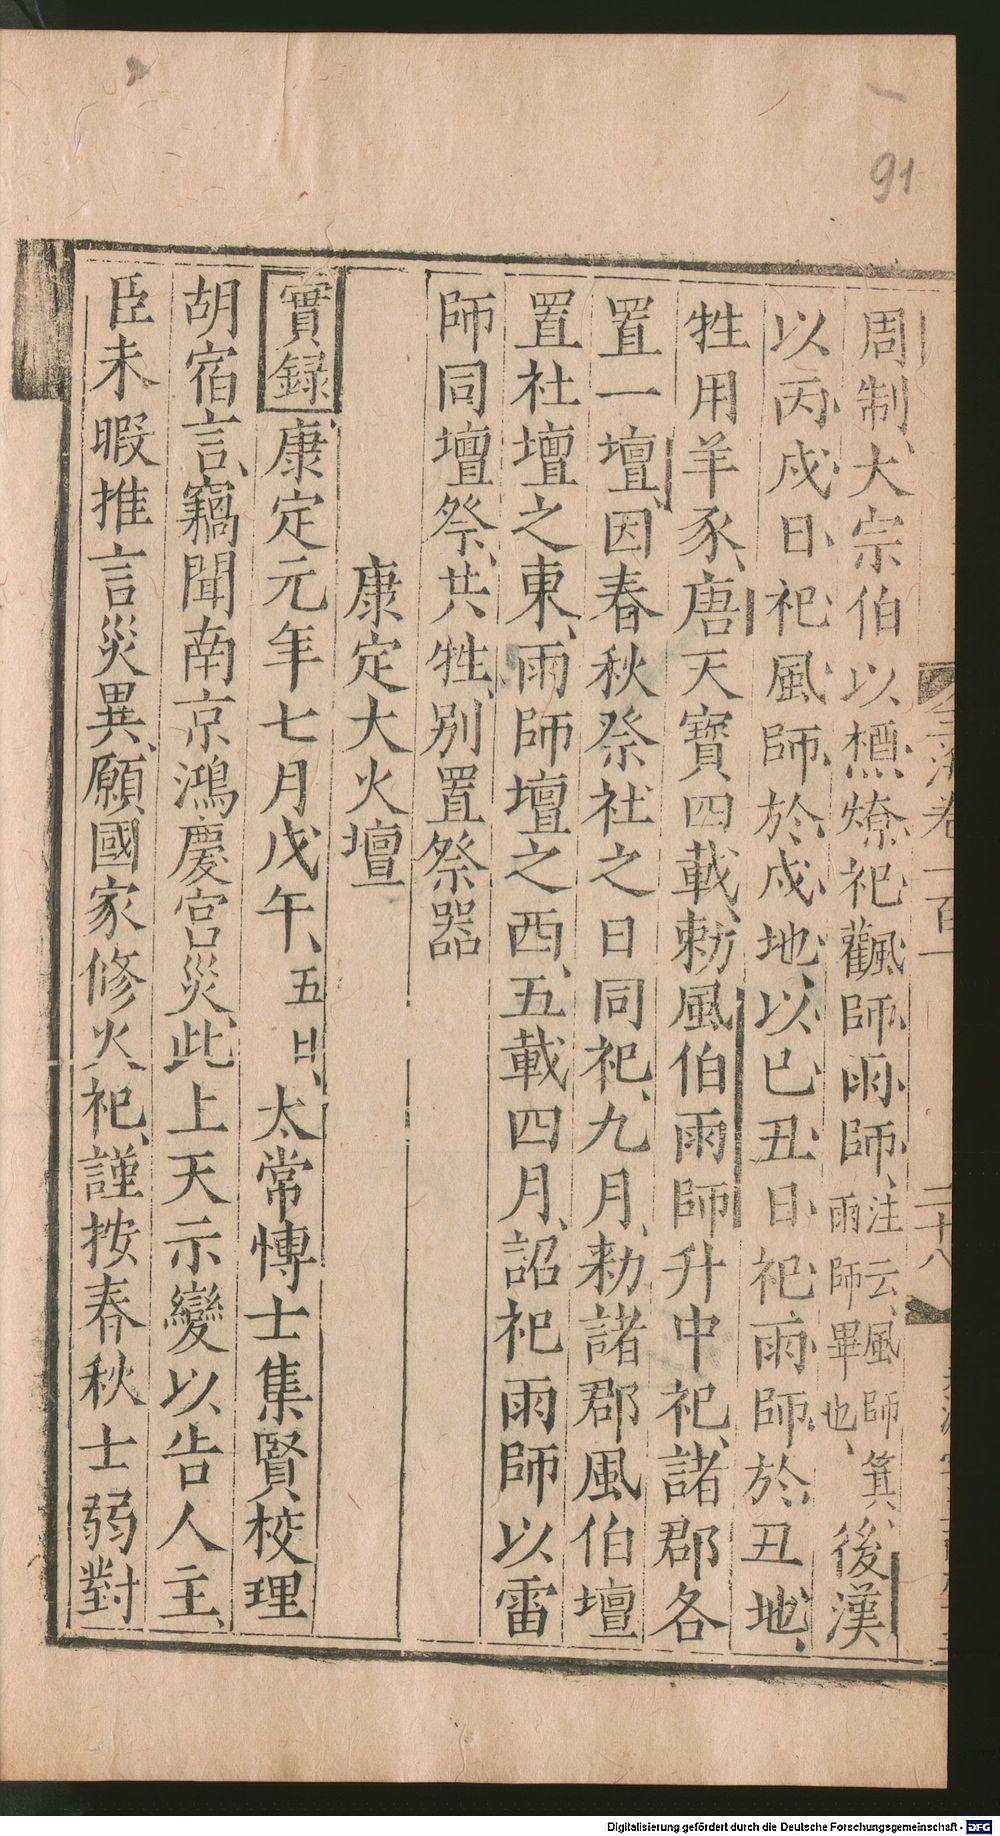 91
玉海卷一百一
二十八
周制、大宗伯以槱燎祀飌師雨師、注云、風師箕、雨師畢也、後漢
以丙戌日祀風師於戌地、以己丑日祀雨師於丑地、
牲用羊豕、唐天寶四載、勅風伯雨師升中祀、諸郡各
置一壇、因春秋祭社之日同祀、九月、勅諸郡風伯壇
置社壇之東、雨師壇之西、五載四月、詔祀雨師以雷
師同壇祭、共牲、別置祭器
康定大火壇
實錄、康定元年七月戊午、五日、太常博士集賢校理
胡宿言、竊聞南京鴻慶宮災、此上天示變以告人主、
臣未暇推言災異、願國家修火祀、謹按春秋士弱對
Digitalisierung gefördert durch die Deutsche Forschungsgemeinschaft - DFG